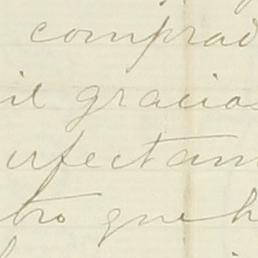 comprad
il gracias
erfectam
tro que h